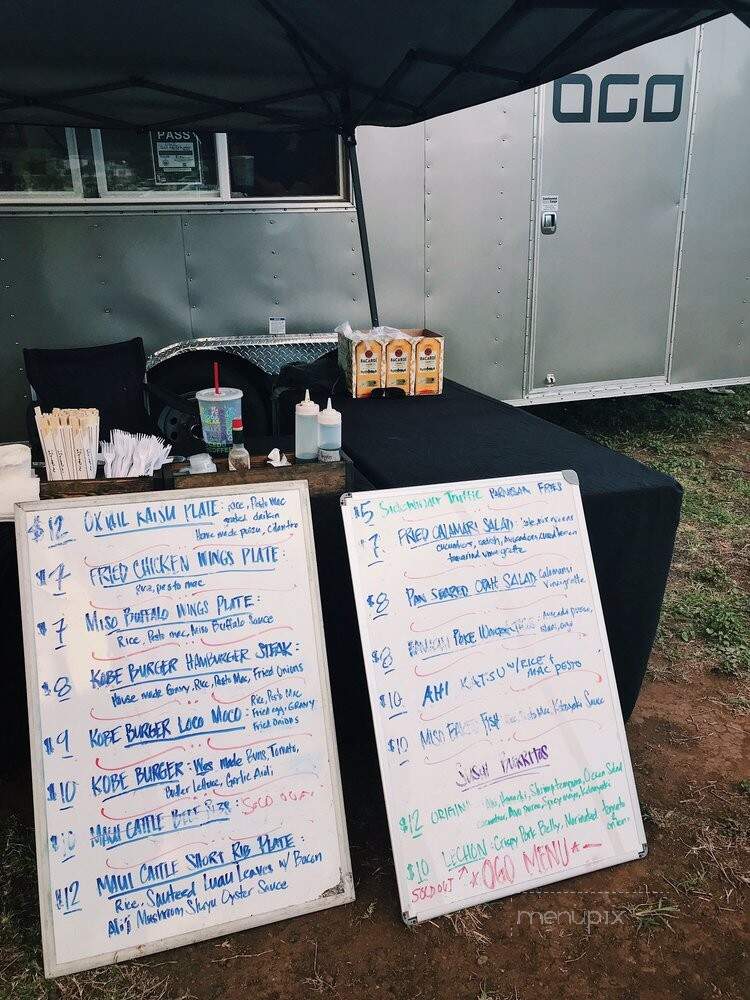 OGO
PASS
BACARDI BACARDI BACARDI
$12 OXTAIL KATSU PLATE: rice, Pesto Mac
grated daikon
Home made ponzu, cilantro
$7 FRIED CHICKEN WINGS PLATE:
Rice, pesto mac
$7 MISO BUFFALO WINGS PLATE:
Rice, Pesto mac, Miso Buffalo Sauce
$8 KOBE BURGER HAMBURGER STEAK:
House made Gravy, Rice, Pesto Mac, Fried Onions
$9 KOBE BURGER LOCO MOCO: Rice, Pesto Mac
Fried egg, Gravy
Fried Onions
$10 KOBE BURGER: House made Buns, Tomato,
Butter Lettuce, Garlic Aioli
$10 MAUI CATTLE BEEF SOLD OUT
$12 MAUI CATTLE SHORT RIB PLATE:
Rice, Sauteed Luau Leaves w/ Bacon
Ali'i Mushroom Shoyu Oyster Sauce
$5 Truffle Parmesan Fries
$7 FRIED CALAMARI SALAD:
cucumbers, radish,
tamarind vinaigrette
$8 PAN SEARED OPAH SALAD: Calamansi
Vinaigrette
$8 POKE : Avocado
$10 AHI KATSU w/ RICE +
MAC PESTO
$10 MISO FISH Rice, Pesto Mac, Sauce
SUSHI BURRITOS
$12 ORIGINAL: Shrimp tempura, Ocean Salad
cucumber, spicy mayo,
$10 LECHON: Crispy Pork Belly, Marinated tomato
+ onion
SOLD OUT ↗ *OGO MENU*
menupix